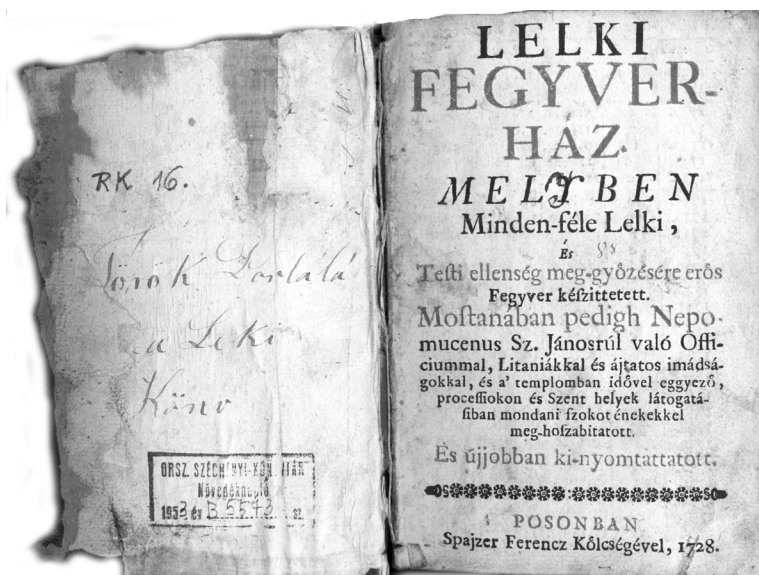 RK 16.
Török
a Leki
Könv
ORSZ. SZÉCHÉNYI-KÖNYVTÁR
Növedéknapló
1953 év B 5573 sz.
LELKI
FEGYVER-
HÁZ.
MELYBEN
Minden-féle Lelki,
És
Testi ellenség meg-gyôzésére erôs
Fegyver kéſzittetett.
Moſtanában pedigh Nepo-
mucenus Sz. Jánosrúl való Offi-
ciummal, Litaniákkal és ájtatos imádsá-
gokkal, és a' templomban idôvel eggyezô,
proceſſiokon és Szent helyek látogatá-
ſiban mondani ſzokot énekekkel
meg-hoſzabitatott.
És újjobban ki-nyomtattatott.
POSONBAN
Spajzer Ferencz Kôlcségével, 1728.